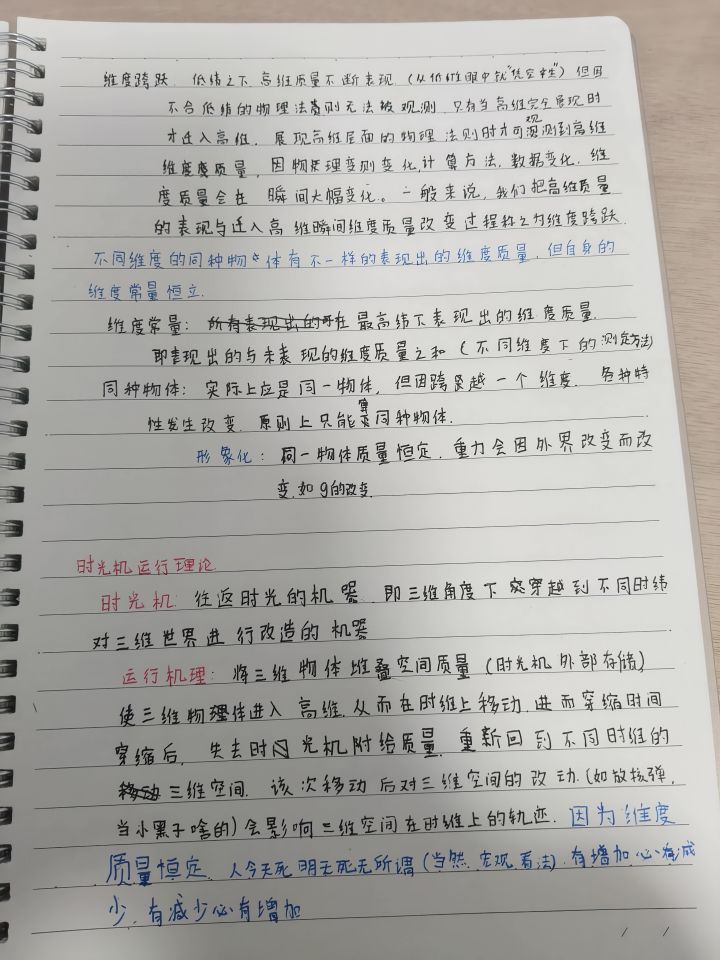 维度跨跃. 低纬之下,高维质量不断表现.(从低维眼中就"凭空产生")但因
不合低纬的物理法则无法被观测.只有当高维完全展现时
才迁入高维.展现高维层面的物理法则时才可观测到高维
维度质量,因物理变则变化,计算方法.数据变化.维
度质量会在 瞬间大幅变化。一般来说,我们把高维质量
的表现与迁入高维瞬间维度质量改变过程称之为维度跨跃.
不同维度的同种物体有不一样的表现出的维度质量,但自身的
维度常量恒立.
维度常量: 在最高纬下表现出的维度质量.
即表现出的与未表现的维度质量之和(不同维度下的测定方法)
同种物体: 实际上应是同一物体,但因跨越一个维度.各种特
性发生改变.原则上只能算同种物体.
形象化: 同一物体质量恒定.重力会因外界改变而改
变.如g的改变.
时光机运行理论
时光机: 往返时光的机器.即三维角度下穿越到不同时纬
对三维世界进行改造的机器
运行机理: 将三维物体堆叠空间质量(时光机外部存储)
使三维物理体进入高维.从而在时维上移动.进而穿缩时间
穿缩后,失去时光机附给质量.重新回到不同时维的
三维空间.该次移动后对三维空间的改动.(如放核弹,
当小黑子啥的)会影响三维空间在时维上的轨迹.因为维度
质量恒定.人今天死明天死无所谓(当然.宏观看法).有增加必有减
少.有减少必有增加